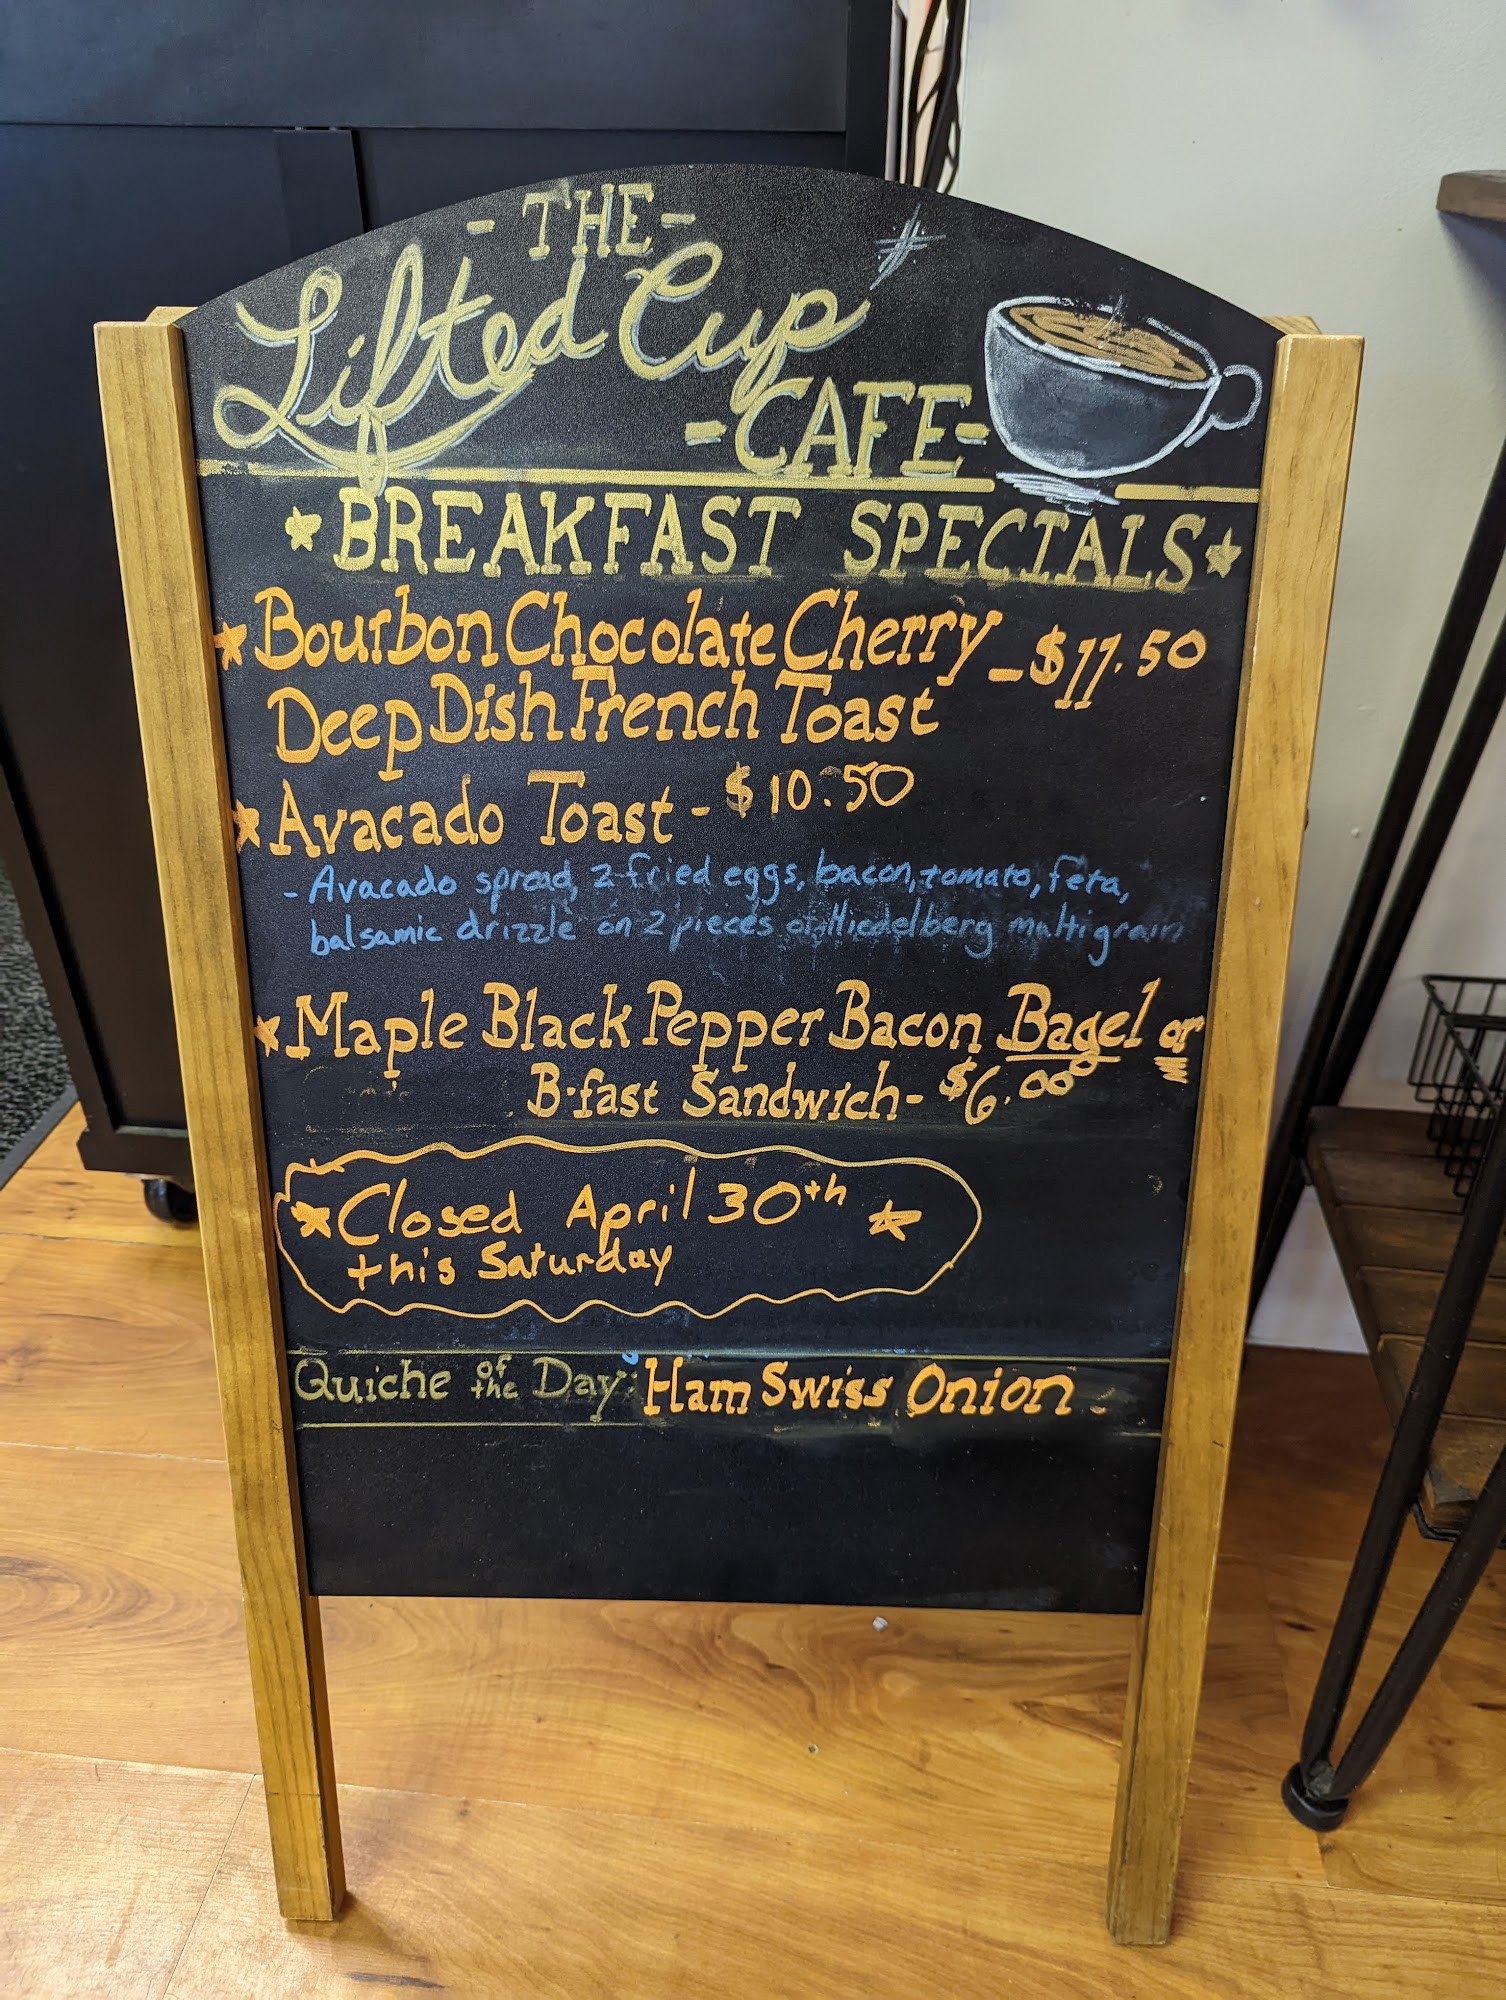 - THE -
Lifted Cup
- CAFE -
BREAKFAST SPECIALS
Bourbon Chocolate Cherry - $11.50
Deep Dish French Toast
Avacado Toast - $10.50
- Avacado spread, 2 fried eggs, bacon, tomato, feta,
balsamic drizzle on 2 pieces of Hiedelberg multigrain
Maple Black Pepper Bacon Bagel or
B·fast Sandwich - $6.00
Closed April 30th
this Saturday
Quiche of the Day: Ham Swiss Onion